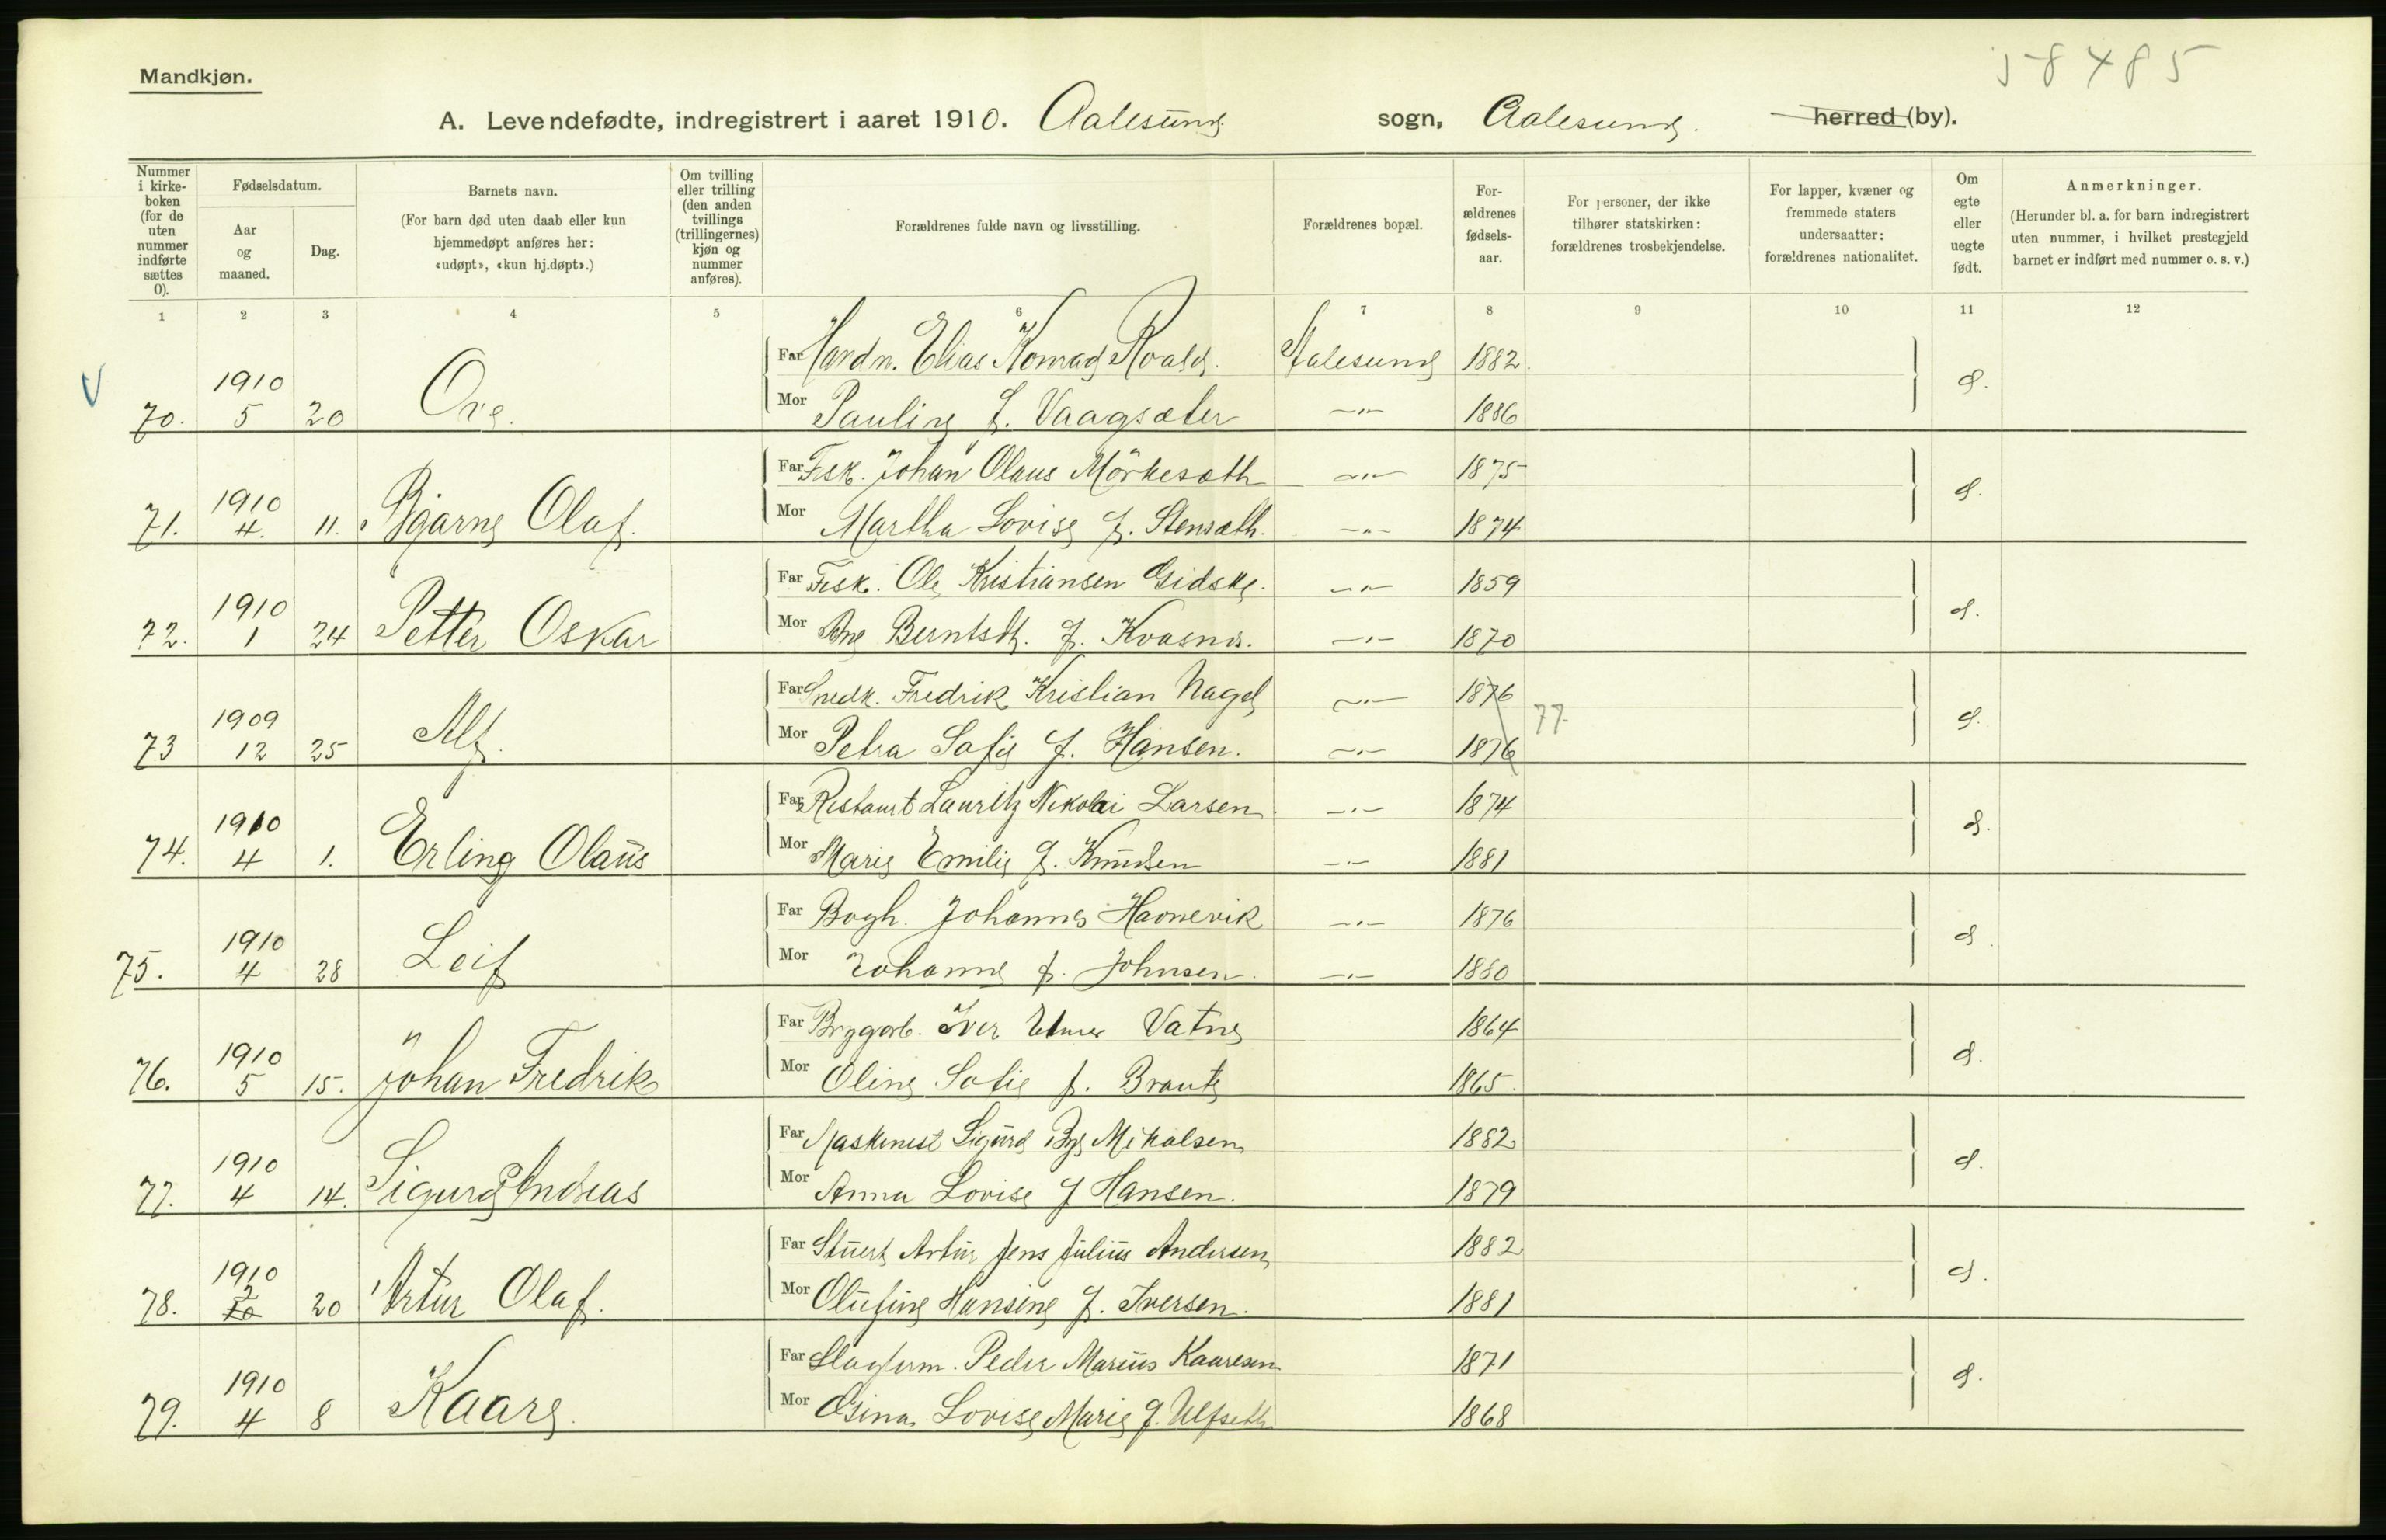 58485
Mandkjøn.
A. Levendefødte, indregistrert i aaret 1910. Aalesund sogn, Aalesund. herred (by).
Nummer i kirke-boken (for de uten nummer indførte sættes 0).
Fødselsdatum.
Aar og maaned.
Dag.
Barnets navn.
(For barn død uten daab eller kun hjemmedøpt anføres her: «udøpt», «kun hj.døpt».)
Om tvilling eller trilling (den anden tvillings (trillingernes) kjøn og nummer anføres).
Forældrenes fulde navn og livsstilling.
Forældrenes bopæl.
For-ældrenes fødsels-aar.
For personer, der ikke tilhører statskirken: forældrenes trosbekjendelse.
For lapper, kvæner og fremmede staters undersaatter: forældrenes nationalitet.
Om egte eller uegte født.
Anmerkninger.
(Herunder bl. a. for barn indregistrert uten nummer, i hvilket prestegjeld barnet er indført med nummer o. s. v.)
1 2 3 4 5 6 7 8 9 10 11 12
Far Handn. Elias Konrad Roald. Aalesund 1882.
V 70. 1910 5 20 Ove. e.
Mor Pauline f. Vaagsæter -"- 1886
Far Fisk. Johan Olaus Mörkesæth -"- 1875
71. 1910 4. 11. Bjarne Olaf. e.
Mor Martha Lovise f. Stensæth. -"- 1874
Far Fisk. Ole Kristiansen Gidske. -"- 1859
72. 1910 1 24 Petter Oskar e.
Mor Ane Berntsdt. f. Kvasnes. -"- 1870
Far Snedk. Fredrik Kristian Nagel -"- 1876
73 1909 12 25 Alf. 77. e.
Mor Petra Sofie f. Hansen. -"- 1876
Far Restaurt Lauritz Nikolai Larsen -"- 1874
74. 1910 4 1. Erling Olaus e.
Mor Marie Emilie f. Knudsen -"- 1881
Far Bogh. Johannes Havnevik -"- 1876
75. 1910 4 28 Leif e.
Mor Johanne f. Johnsen. -"- 1880
Far Bryggarb. Iver Vatne 1864
76. 1910 5 15. Johan Fredrik e.
Mor Oline Sofie f. Braute 1865.
Far Maskinist Sigurd Mikalsen 1882
77. 1910 4 14. Sigurd Andreas e.
Mor Anna Lovise f Hansen. 1879
Far Stuert Artur Jens Julius Andersen 1882
78. 1910 2 20 Artur Olaf. e.
Mor Olufine Hansine f. Iversen. 1881
Far Slagterm. Peder Marius Kaaresen 1871
79. 1910 4 8 Kaare. e.
Mor Gina Lovise Marie f. Ulfseth 1868